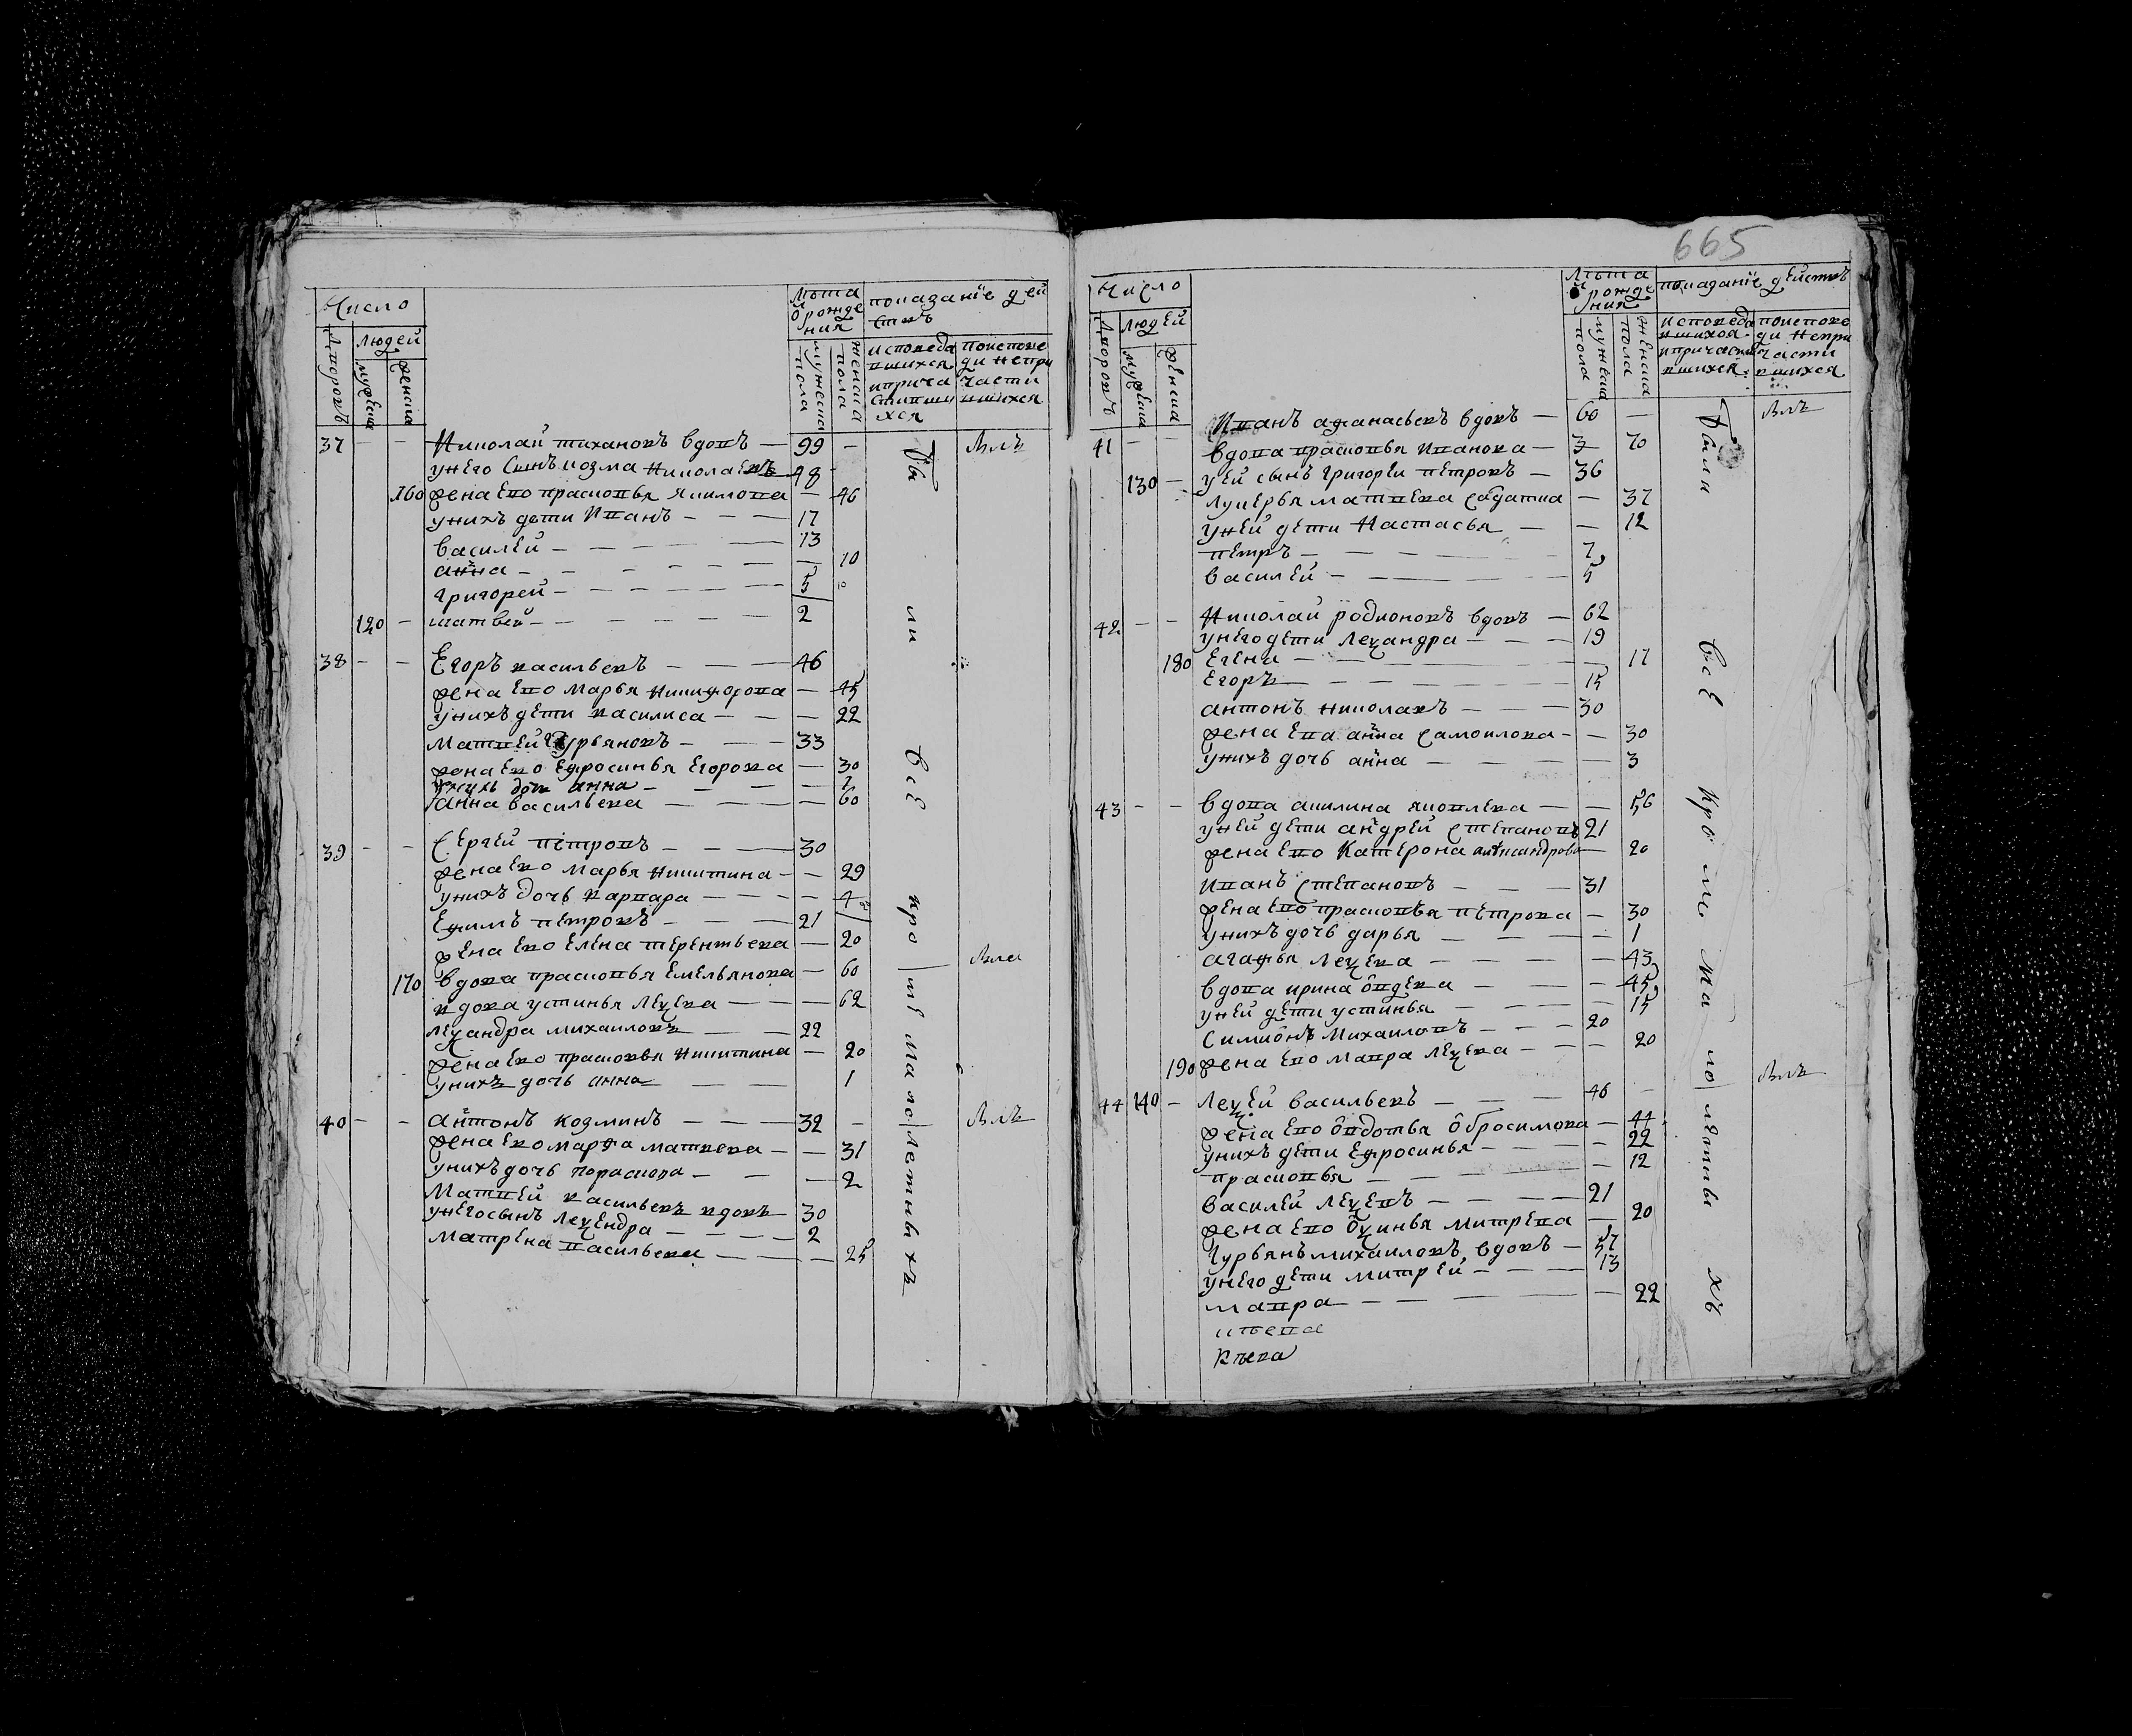 Число
Дворовъ
людей
мужеска
женска
лѣта
ѿ рожде
ния
мужеска
пола
женска
пола
показанїе дей
ствъ
исповеда
вшихся
и прича
стивши
хся
поиспове
ди непри
части
вшихся
37 - - Николай тихановъ вдовъ — 99 -
у него сынъ козма николаевъ 48
160 жена ево прасковья якимова — 46
у нихъ дети иванъ - — — 17
василей — — — — 13
анна — - - — — — 10
григорей — - — — — 5
120 - матвей — - — — — 2
38 - - Егоръ васильевъ — — — 46
жена ево марья никифорова — 45
у нихъ дети василиса — — — 22
матвей гурьяновъ — — — 33
жена ево ефросинья егорова — 30
у нихъ дочь анна — — — 1
анна васильева — — — 60
39 - - Сергей петровъ — — — 30
жена ево марья никитина — — 29
у нихъ дочь варвара — — — - 4
Ефимъ петровъ — — — 21
жена ево елена терентьева — 20
170 вдова прасковья емельянова — 60
вдова устинья леѯева — — — 62
леѯандра михаиловъ — — 22
жена ево прасковья никитина — 20
у нихъ дочь анна — — 1
40 - - антонъ козминъ — — — 32 -
жена ево марфа матвева — — 31
у нихъ дочь параскова — — — 2
матвей васильевъ вдовъ — 30
у него сынъ леѯендра — — — — 2
матрена васильева — — — 25
Бы ли все кро ме ма ло летны хъ
Влъ
Вла
Влъ
665
Число
Дворовъ
людей
мужеска
женска
лѣта
ѿ рожде
ния
мужеска
пола
женска
пола
показанїе действъ
исповеда
вшихся
и причасти
вшихся
поиспове
ди непри
части
вшихся
Иванъ афанасьевъ вдовъ — 60 —
41 - - вдова прасковья иванова — 70
130 - у ей сынъ григорей петровъ — 36
лукерья матвева салдатка — 37
у ней дети настасья — — 12
петръ — — — — 7
василей — — — 5
42 - - Николай родионовъ вдовъ — 62
у него дети леѯандра — — — 19
180 Егена — — — — 17
Егоръ — — — — 15
антонъ николавъ — — — 30
жена ева анна самоилова - — 30
у нихъ дочь анна — — — — 3
43 - - вдова акилина яковлева — — 56
у ней дети андрей степановъ 21
жена ево катерона александрова — 20
иванъ степановъ — — — 31
жена ево прасковья петрова — 30
у нихъ дочь дарья — — — — 1
агафья леѯева — — — — 43
вдова ирина ѻвдева — — — 45
у ней дети устинья — — — — 15
симионъ михаиловъ — — — 20
190 жена ево мавра леѯева — — — 20
44 140 - Леѯей васильевъ — — — 46 -
жена ево ѻвдотья ѻбросимова — 44
у нихъ дети ефросинья — — — 22
прасковья — — — — 12
василей леѯевъ — — — — 21
жена ево ѻѯинья митрева — 20
Гурьянъ михаиловъ вдовъ — 57
у него дети митрей — — — 13
мавра — — — — 22
Были все кро ме ма ло летны хъ
Влъ
Влъ